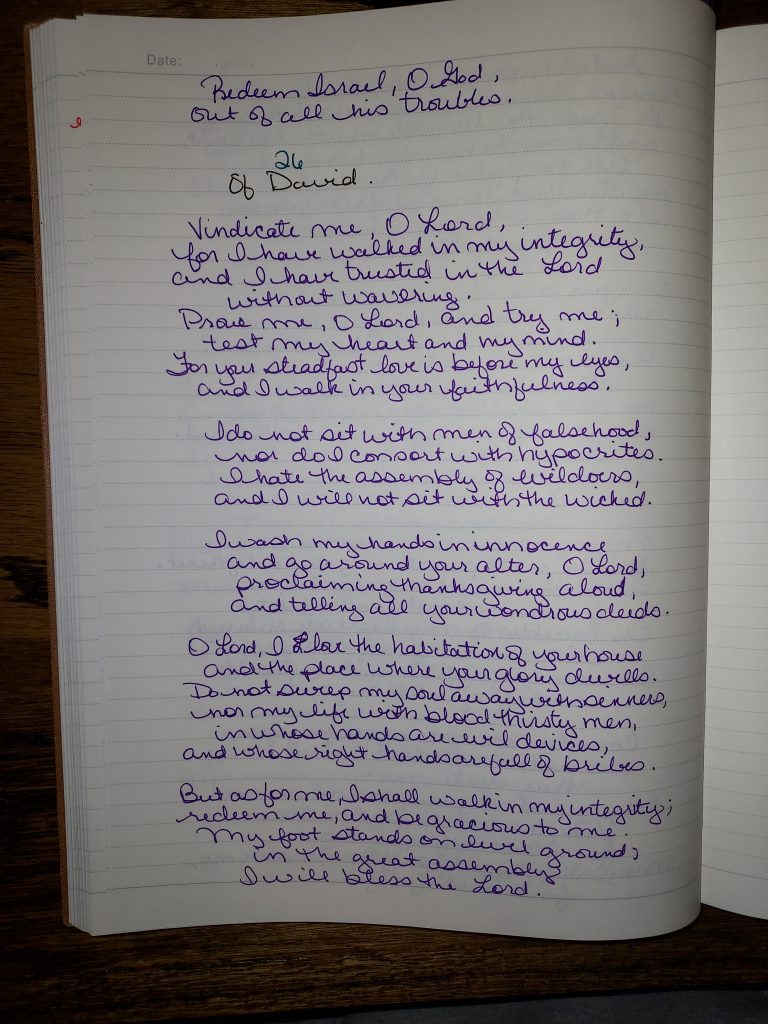 Date:
Redeem Israel, O God,
out of all his troubles.
26
Of David.
Vindicate me, O Lord,
for I have walked in my integrity,
and I have trusted in the Lord
without wavering.
Prove me, O Lord, and try me;
test my heart and my mind.
For your steadfast love is before my eyes,
and I walk in your faithfulness.
I do not sit with men of falsehood,
nor do I consort with hypocrites.
I hate the assembly of evildoers,
and I will not sit with the wicked.
I wash my hands in innocence
and go around your alter, O Lord,
proclaiming thanksgiving aloud,
and telling all your wondrous deeds.
O Lord, I love the habitation of your house
and the place where your glory dwells.
Do not sweep my soul away with sinners,
nor my life with bloodthirsty men,
in whose hands are evil devices,
and whose right hands are full of bribes.
But as for me, I shall walk in my integrity;
redeem me, and be gracious to me.
My foot stands on level ground;
in the great assembly
I will bless the Lord.